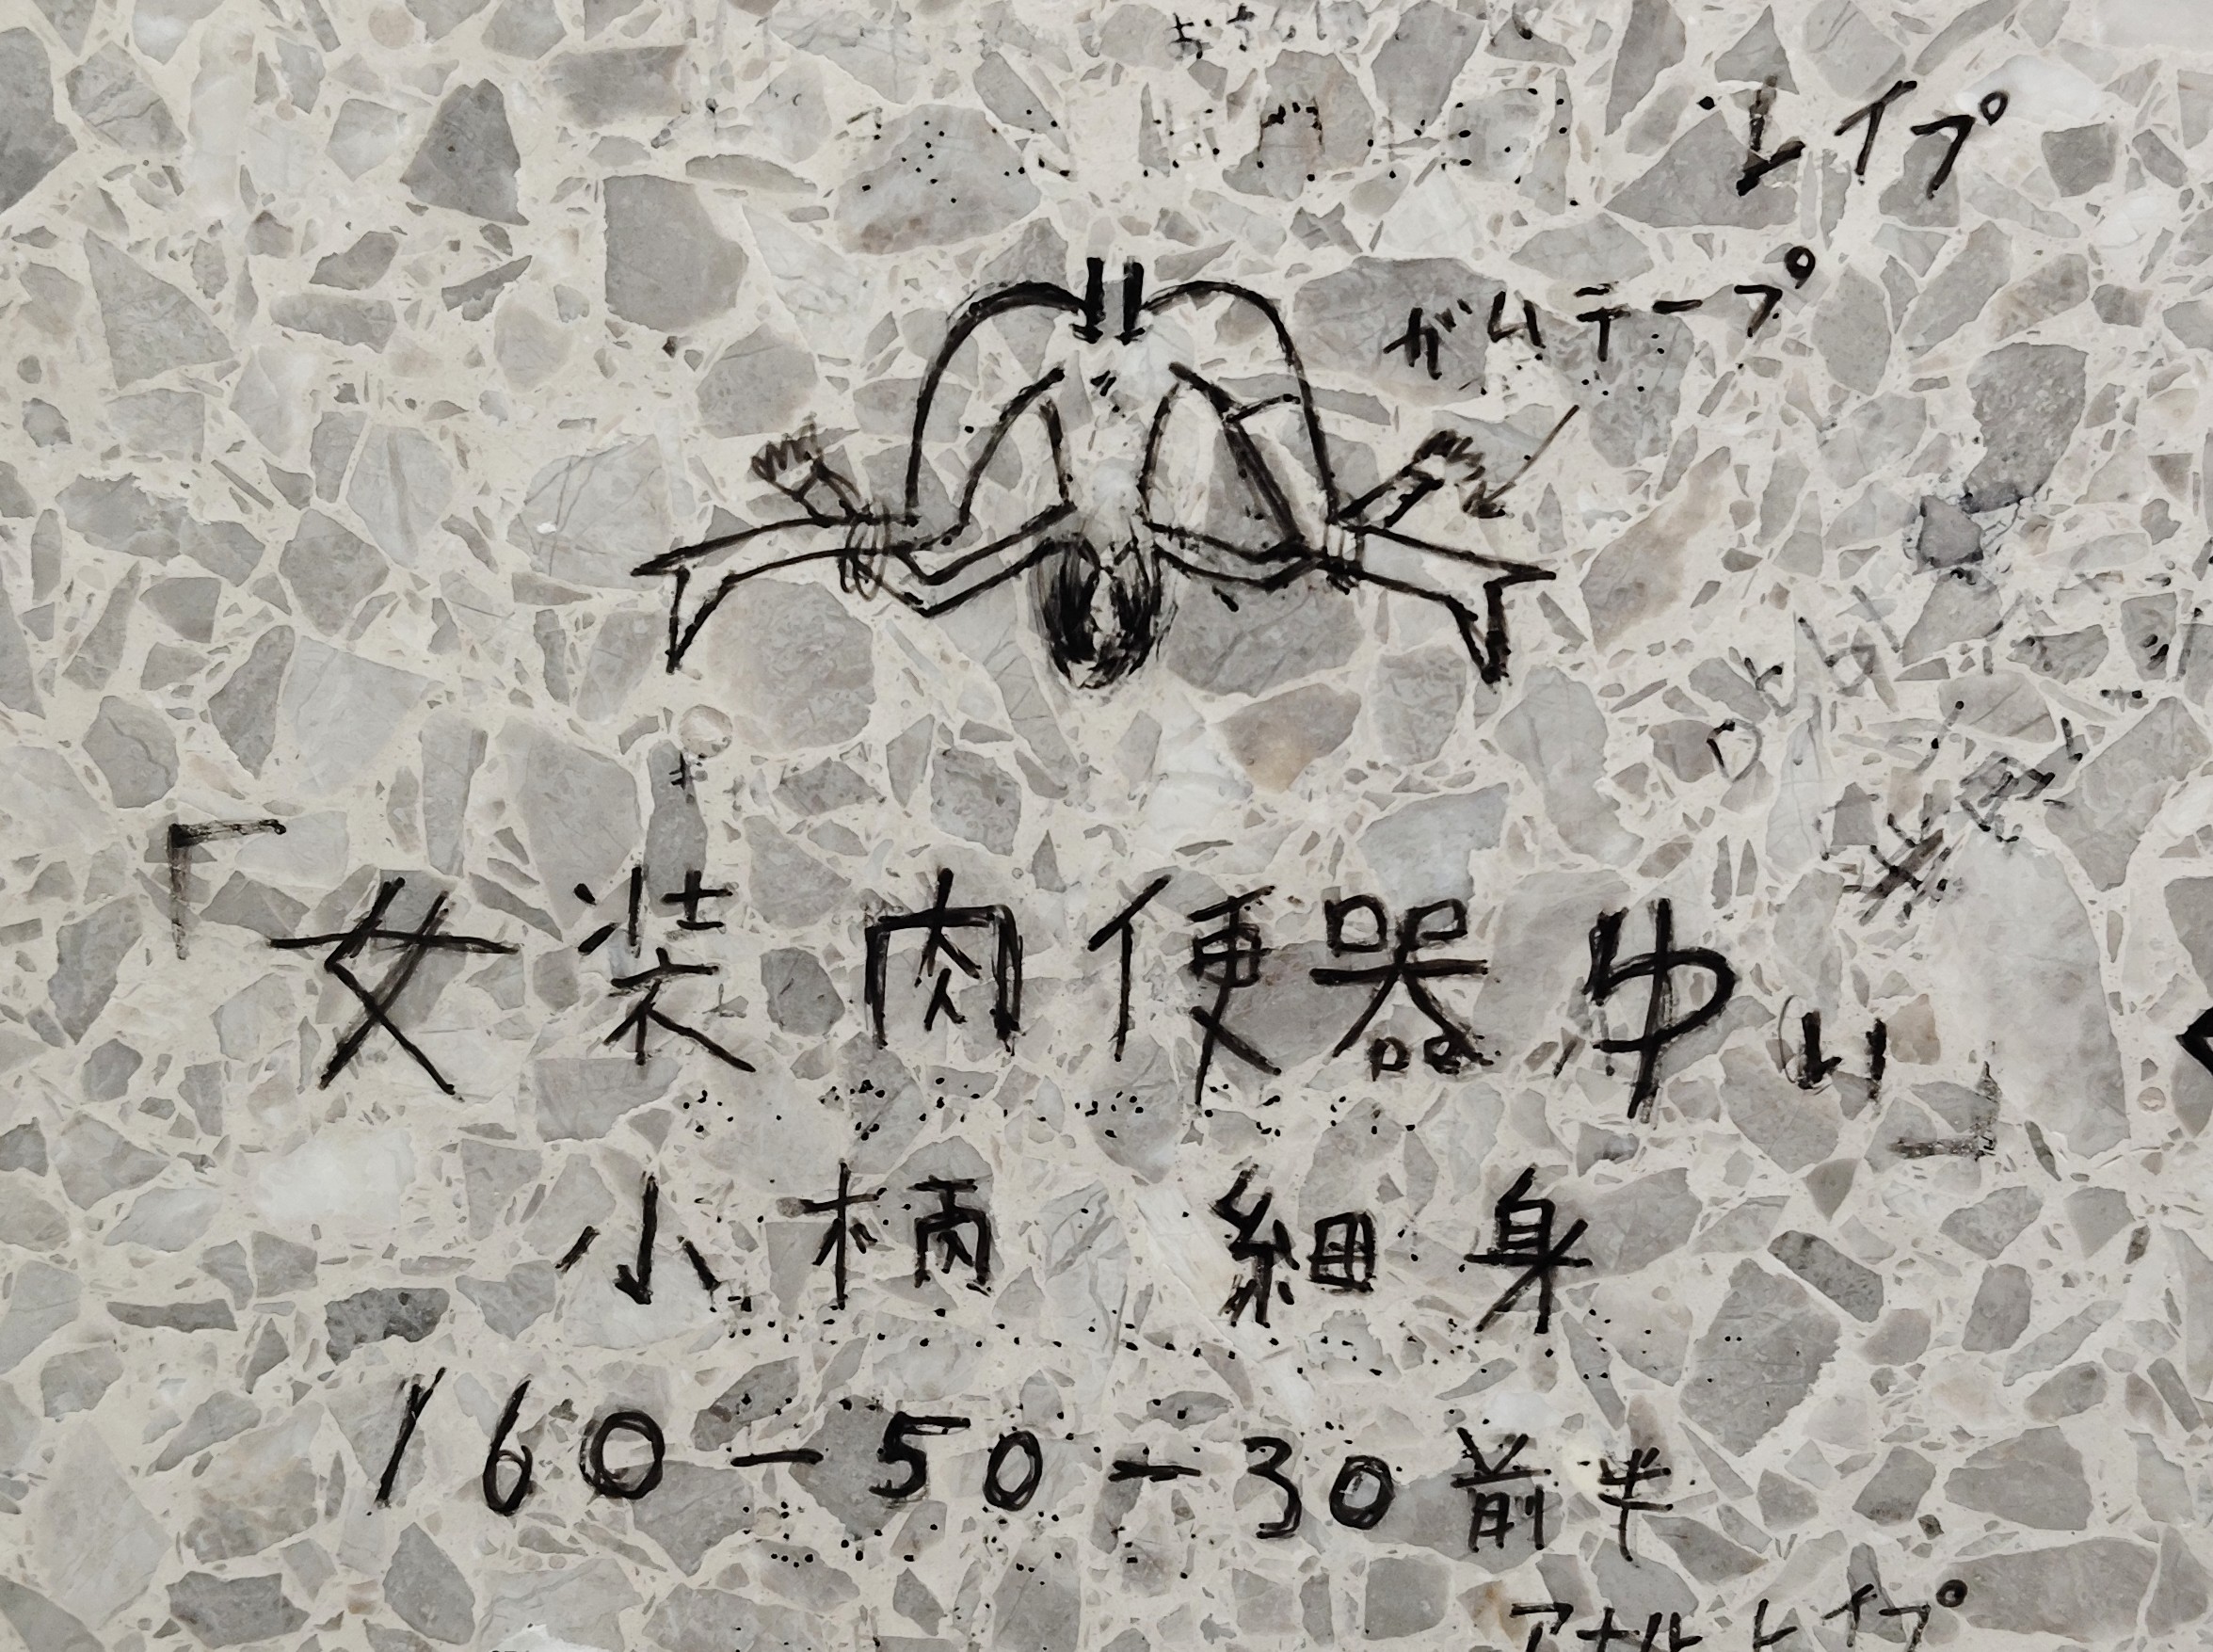 レイプ
ガムテープ
「女装肉便器ゆい」
小柄 細身
160-50-30前半
アナルレイプ